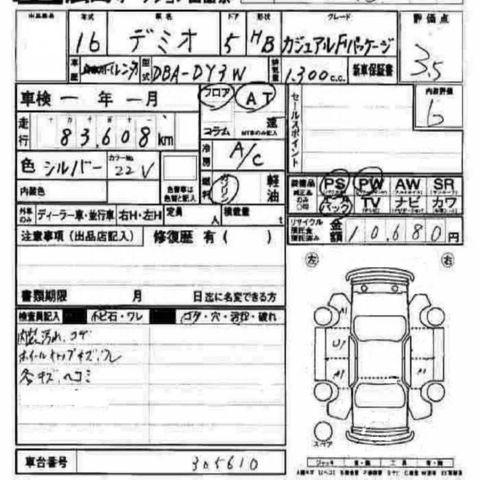 出品番号 年式 車名 ドア 形状 グレード 評価点
16 デミオ 5 HB カジュアルFパッケージ 3.5
車歴 レンタ 型式 DBA-DY3W 排気量 1,300 c.c. 新車保証書
車検 一 年 一 月 フロア AT セールスポイント 内装評価
走行 83,608 km コラム 速
冷房 A/C
色 シルバー カラーNo. 22V 燃料 ガソリン 軽油
内装色 色替車は色替と記入 装備品 純正品のみ○印 PS PW AW SR
エアバック TV ナビ カワ
外車のみ ディーラー車・並行車 右H・左H 定員 人 積載量
リサイクル預託金預託済み 金額 10,680円
注意事項（出品店記入） 修復歴 有（ ）
左 右
書類期限 月 日迄に名変できる方
検査員記入 トビ石・ワレ コゲ・穴・汚れ・破れ
内装汚れ、コゲ
ホイールキャップキズ、ワレ
各キズ、ヘコミ
A1
U1
A1
A1
スペア
車台番号 305610
ジャッキ 有・無 工具 有・無